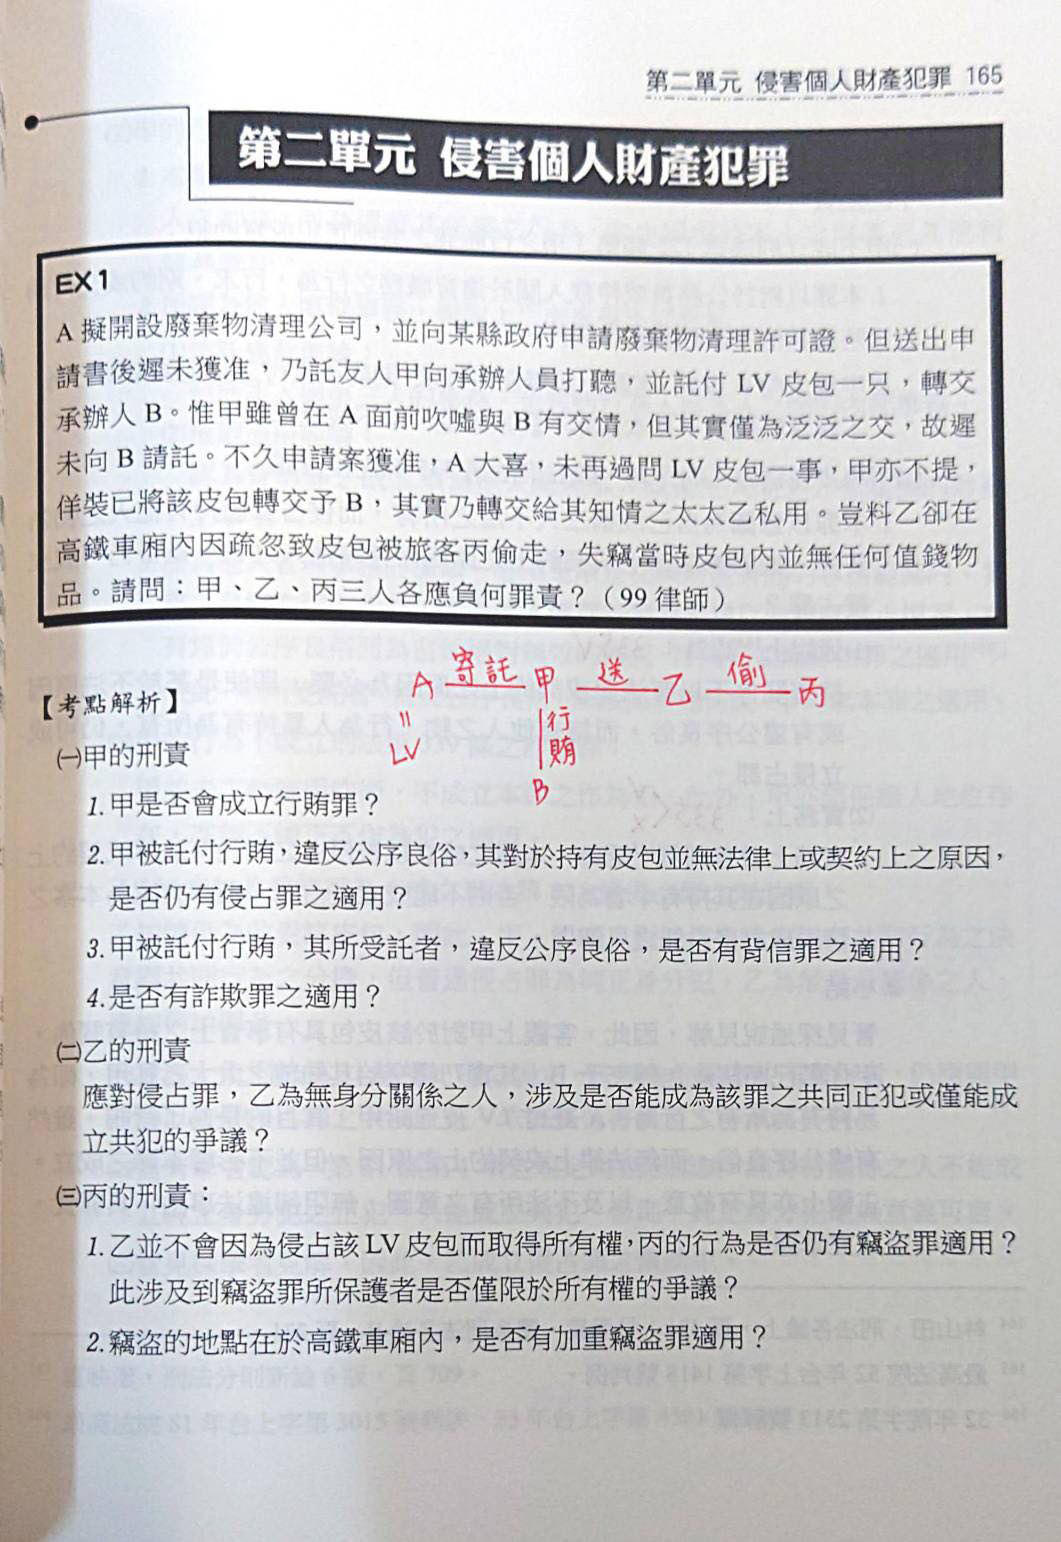 第二單元 侵害個人財產犯罪 165
第二單元 侵害個人財產犯罪
EX 1
A 擬開設廢棄物清理公司，並向某縣政府申請廢棄物清理許可證。但送出申
請書後遲未獲准，乃託友人甲向承辦人員打聽，並託付 LV 皮包一只，轉交
承辦人 B。惟甲雖曾在 A 面前吹噓與 B 有交情，但其實僅為泛泛之交，故遲
未向 B 請託。不久申請案獲准，A 大喜，未再過問 LV 皮包一事，甲亦不提，
佯裝已將該皮包轉交予 B，其實乃轉交給其知情之太太乙私用。豈料乙卻在
高鐵車廂內因疏忽致皮包被旅客丙偷走，失竊當時皮包內並無任何值錢物
品。請問：甲、乙、丙三人各應負何罪責？（99 律師）
A 寄託 甲 送 乙 偷 丙
LV 行賄
B
【考點解析】
㈠甲的刑責
1.甲是否會成立行賄罪？
2.甲被託付行賄，違反公序良俗，其對於持有皮包並無法律上或契約上之原因，
是否仍有侵占罪之適用？
3.甲被託付行賄，其所受託者，違反公序良俗，是否有背信罪之適用？
4.是否有詐欺罪之適用？
㈡乙的刑責
應對侵占罪，乙為無身分關係之人，涉及是否能成為該罪之共同正犯或僅能成
立共犯的爭議？
㈢丙的刑責：
1.乙並不會因為侵占該 LV 皮包而取得所有權，丙的行為是否仍有竊盜罪適用？
此涉及到竊盜罪所保護者是否僅限於所有權的爭議？
2.竊盜的地點在於高鐵車廂內，是否有加重竊盜罪適用？